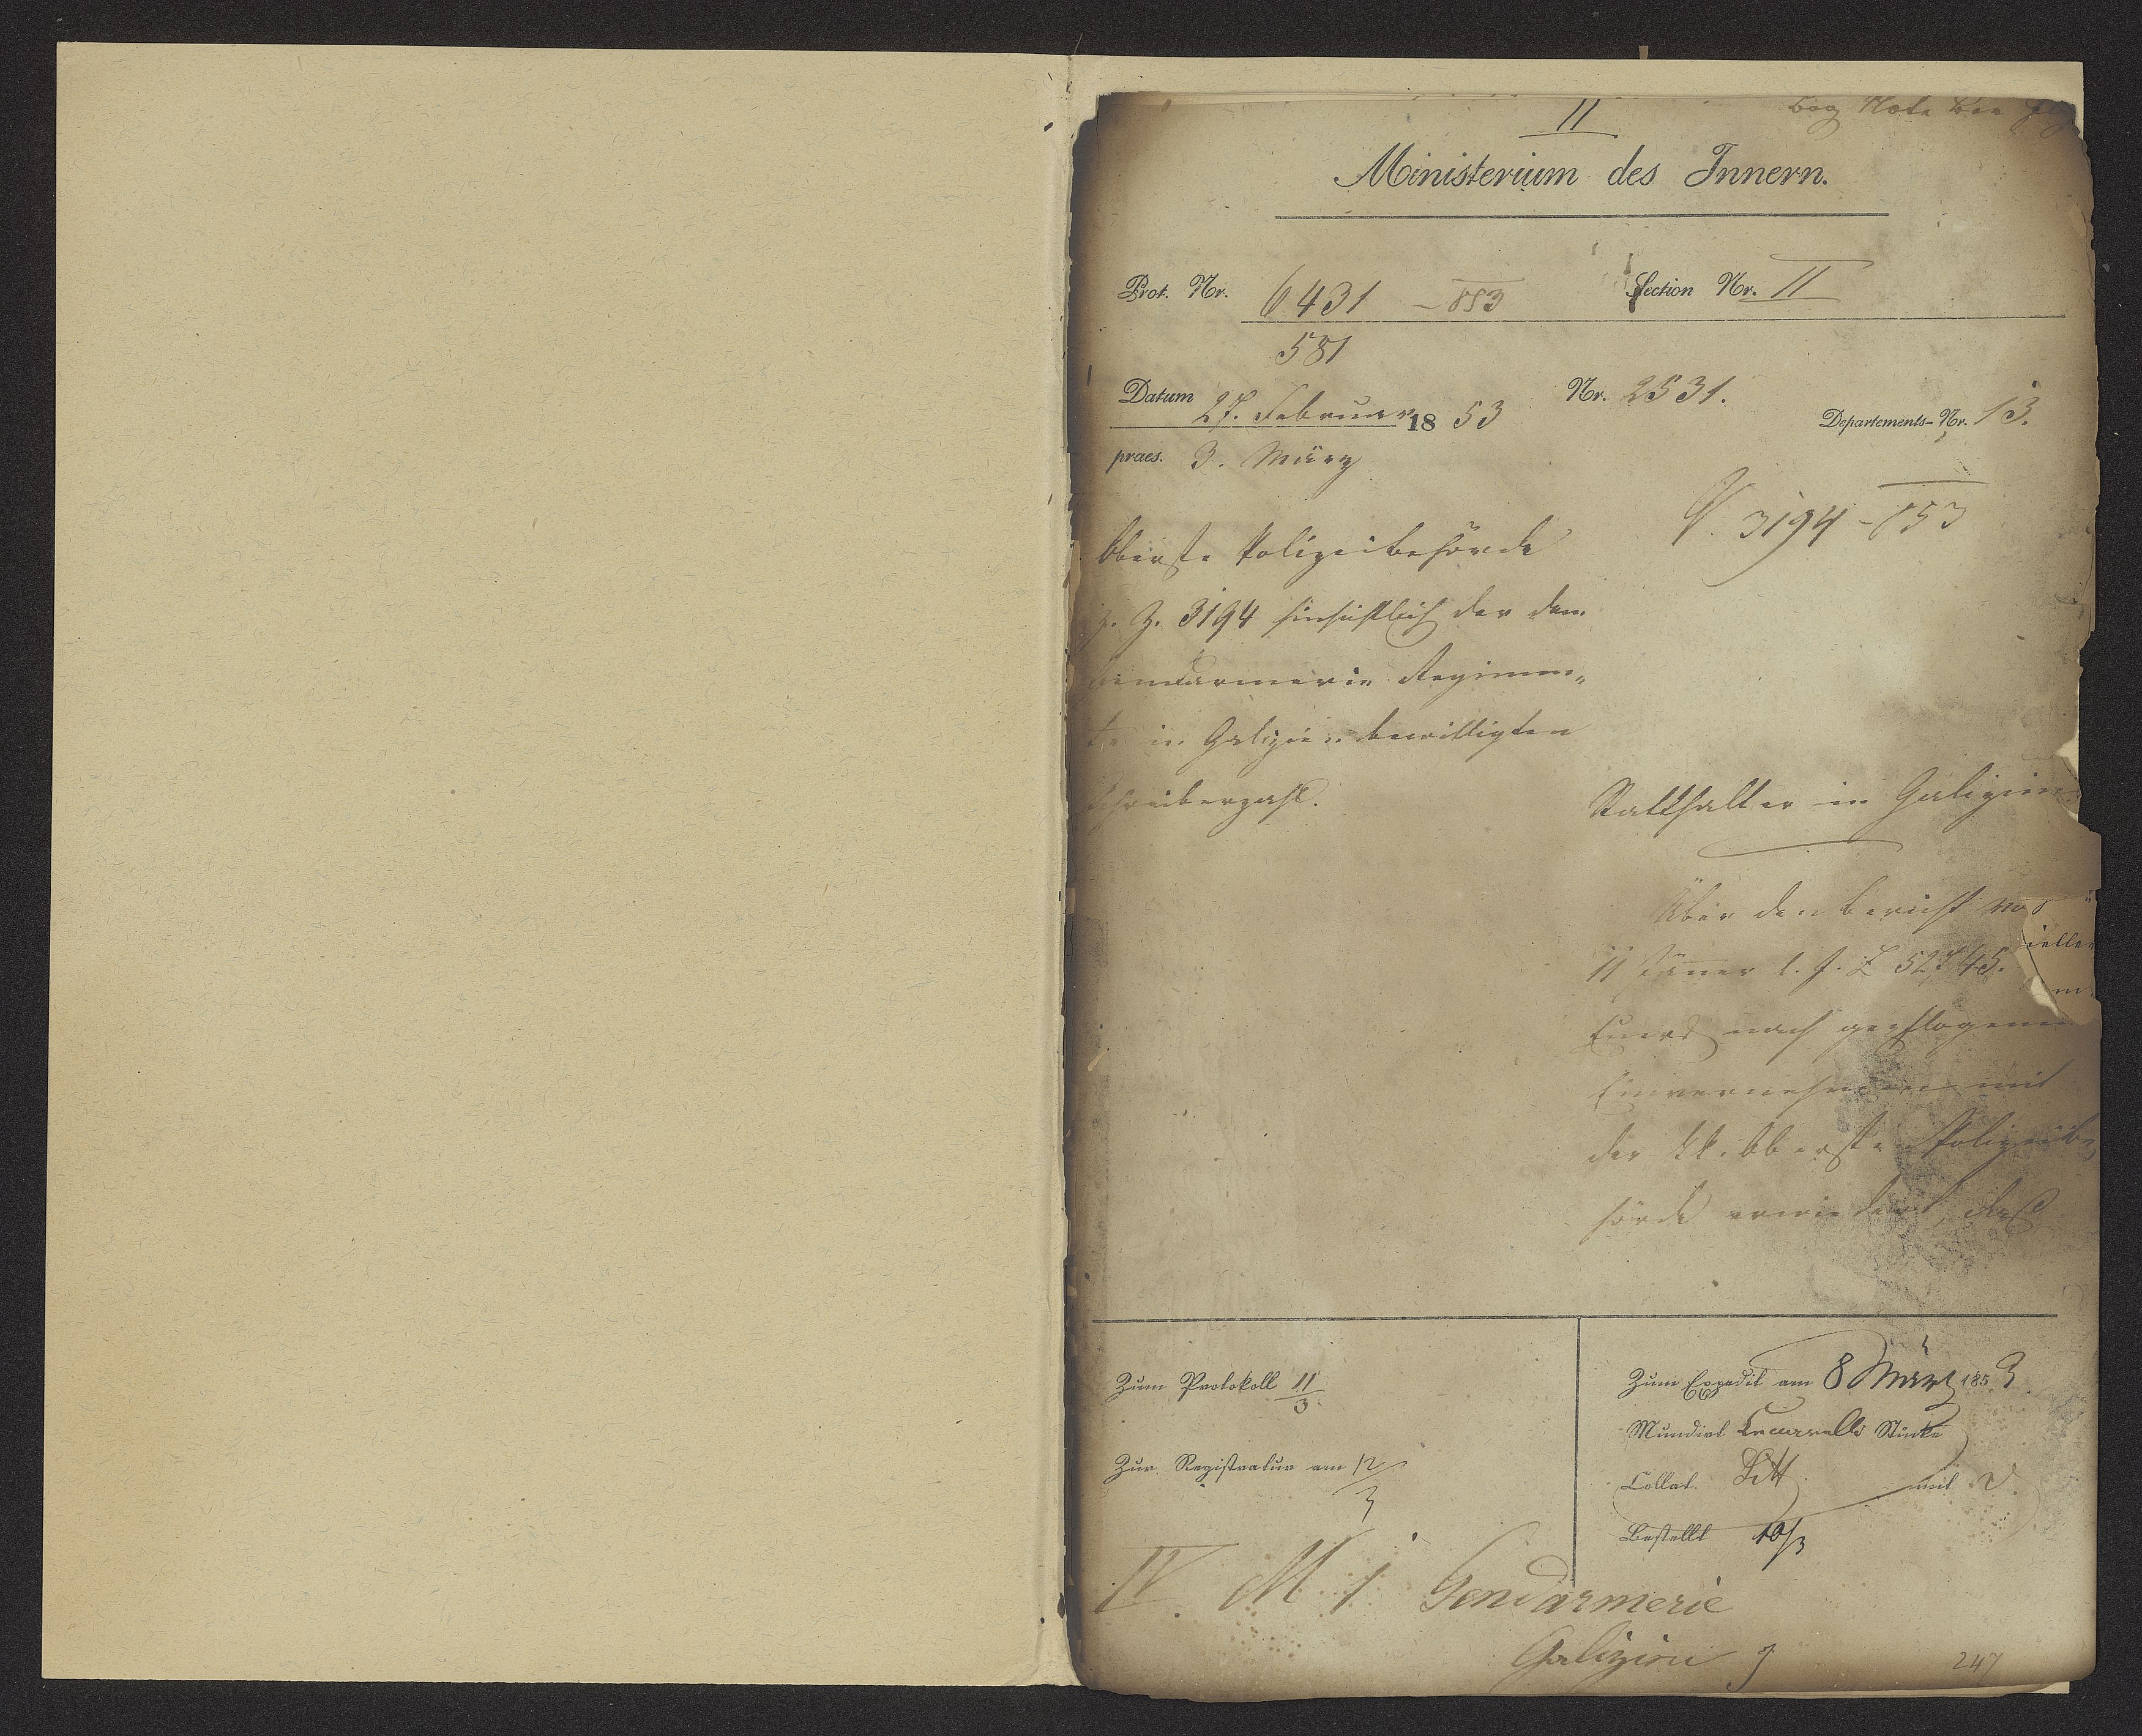 II
Ministerium des Innern.
Prot. Nr. 6431 – 853
Section Nr. II
581
Datum 27. Februar 1853
Nr. 2531.
Departements-Nr. 13.
praes. 3. März
V. 3194 – 853
Oberste Polizeibehörde
z. Z. 3194 hinsichtlich der dem
Gendarmerie Regimen„
te in Galizien bewilligten
Schreiberzahl.
Statthalter in Galizien
Über den Bericht vo
11 Jäner l. J. Z 52745.
ielle
m
Euer nach gepflogenem
Einvernehmen mit
der kk. Oberste Polizeibe„
hörde erwiedert, daß
Zum Protokoll 11/3
Zur Registratur am 12/3
Zum Expedit am 8 März 1853
Mundirt Stücke
Collat. mit
Bestellt 10/3
IV. M. 1 Gendarmerie
Galizien
247